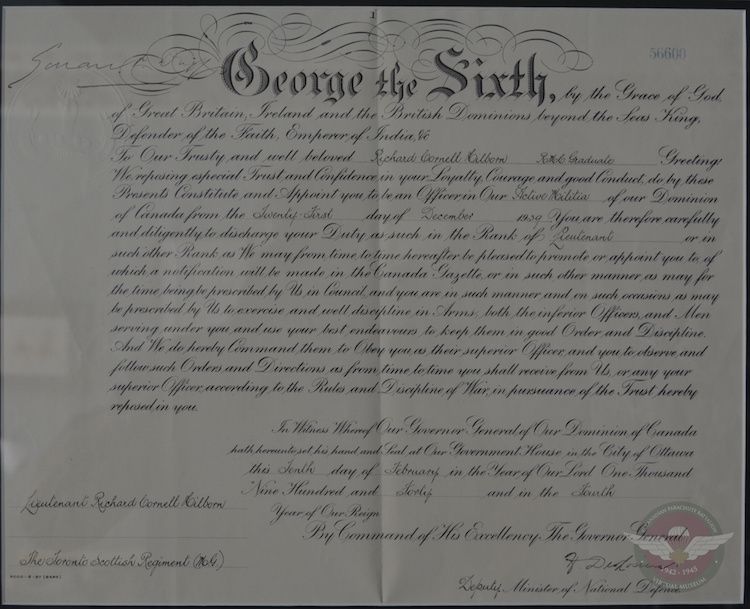 1
56600
George the Sixth, by the Grace of God,
of Great Britain, Ireland and the British Dominions beyond the Seas King,
Defender of the Faith, Emperor of India, &c
To Our Trusty and well beloved Richard Cornell Hilborn R.M.C. Graduate Greeting:
We reposing especial Trust and Confidence in your Loyalty, Courage and good Conduct, do by these
Presents Constitute and Appoint you to be an Officer in Our Active Militia of our Dominion
of Canada from the Twenty-First day of December 1939 You are therefore carefully
and diligently to discharge your Duty as such in the Rank of Lieutenant or in
such other Rank as We may from time to time hereafter be pleased to promote or appoint you to, of
which a notification will be made in the Canada Gazette, or in such other manner, as may for
the time being be prescribed by Us, in Council, and you are in such manner and on such occasions as may
be prescribed by Us to exercise and well discipline in Arms, both the inferior Officers, and Men
serving under you and use your best endeavours to keep them in good Order and Discipline.
And We do hereby Command them to Obey you as their superior Officer, and you to observe and
follow such Orders and Directions as from time to time you shall receive from Us, or any your
superior Officer, according to the Rules and Discipline of War, in pursuance of the Trust hereby
reposed in you.
In Witness Whereof Our Governor General of Our Dominion of Canada
hath hereunto set his hand and Seal at Our Government House in the City of Ottawa
this Tenth day of February in the Year of Our Lord One Thousand
Nine Hundred and Forty and in the Fourth
Year of Our Reign
By Command of His Excellency The Governor General
Lieutenant Richard Cornell Hilborn
The Toronto Scottish Regiment (M.G.)
Deputy Minister of National Defence
CANADIAN PARACHUTE BATTALION
1942 - 1945
VIRTUAL MUSEUM